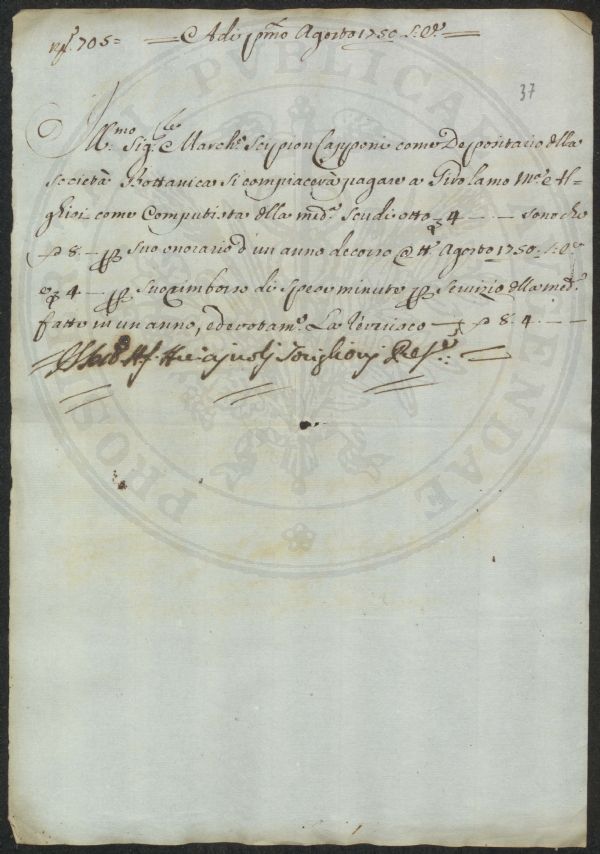 705 = Adi pmo Agosto 1750
37
Illmo Sigre Marche Scipion Capponi come Depositario della
società Bottanica si compiacerà pagare a Girolamo
come Computista della medª Scudi otto 4 — sono che
8 — suo onorario d'un anno decorso Agosto 1750
e 4 — suo rimborso di spese minute servizio della medª
fatte in un anno, e devotamᵉ La riverisco — 8. 4. —
PROSPERITATI PVBLICAE AVGENDAE